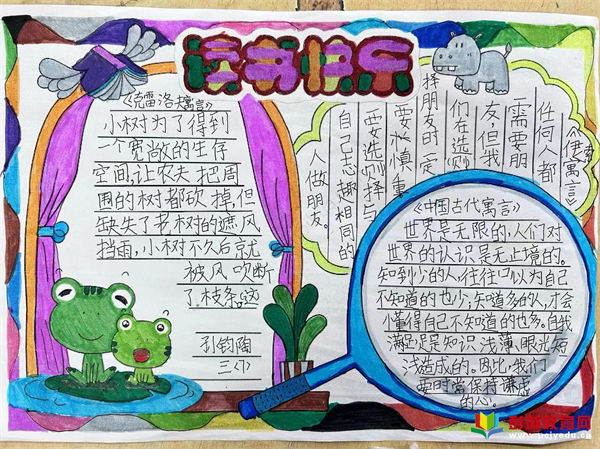 读书快乐
《克雷洛夫寓言》
小树为了得到
一个宽敞的生存
空间,让农夫把周
围的树都砍掉,但
缺失了老树的遮风
挡雨,小树不久后就
被风吹断
了枝条。这
孙钧陶
三(7)
《伊索寓言》
任何人都
需要朋
友,但我
们在选
择朋友时一定
要慎重
要选择与
自己志趣相同的
人做朋友。
《中国古代寓言》
世界是无限的,人们对
世界的认识是无止境的。
知到少的人,往往以为自己
不知道的也少;知道多的人,才会
懂得自己不知道的也多。自我
满足是知识浅薄、眼光短
浅造成的。因比,我们
要时常保持谦虚
的心。
www.pcjyedu.cn